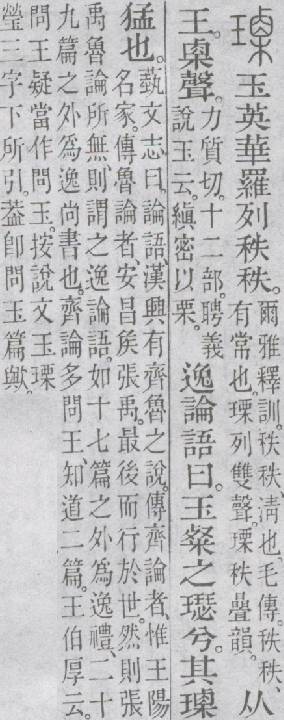 瑮玉英華羅列秩秩。爾雅釋訓。秩秩、清也。毛傳。秩秩、
有常也。瑮列雙聲。瑮秩曡韻。从
王。㮚聲。力質切。十二部。聘義
說玉云。縝密以栗。逸論語曰。玉粲之璱兮。其瑮
猛也。埶文志曰。論語漢興有齊魯之說。傳齊論者、惟王陽
名家。傳魯論者、安昌矦張禹。最後而行於世。然則張
禹魯論所無、則謂之逸論語。如十七篇之外爲逸禮、二十
九篇之外爲逸尚書也。齊論多問王、知道二篇。王伯厚云。
問王疑當作問玉。按說文玉瑮
瑩三字下所引。葢卽問玉篇歟。